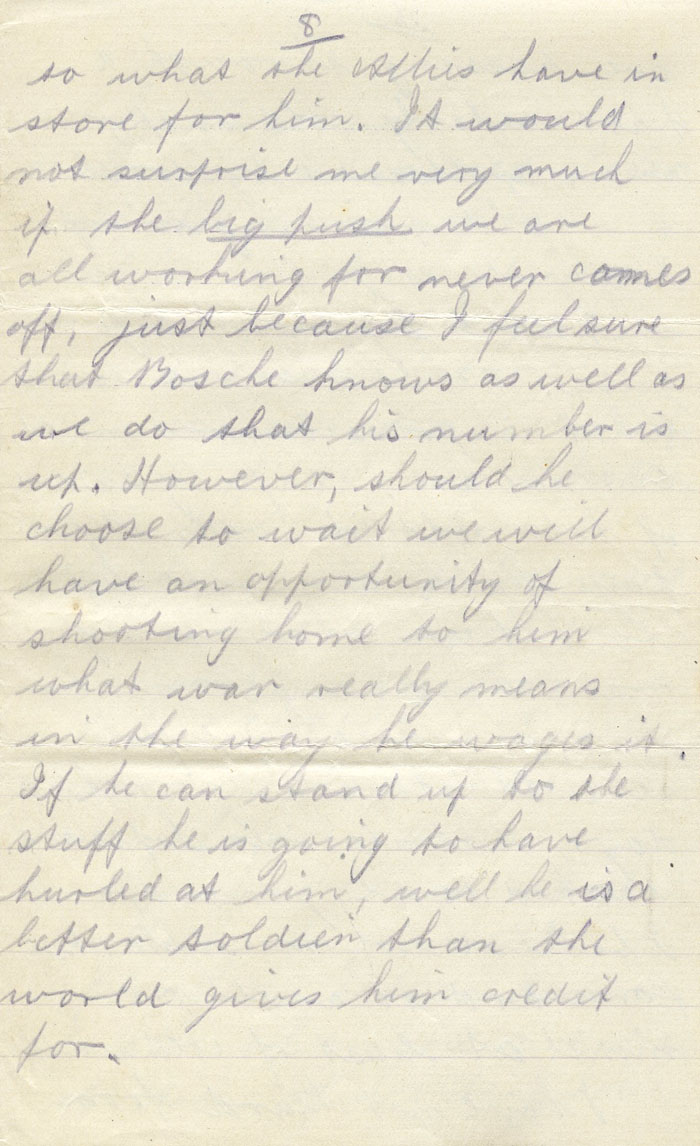 8
to what the Allies have in
store for him. It would
not surprise me very much
if the big push we are
all working for never comes
off, just because I feel sure
that Bosche knows as well as
we do that his number is
up. However, should he
choose to wait we will
have an opportunity of
shooting home to him
what war really means
in the way he wages it.
If he can stand up to the
stuff he is going to have
hurled at him, well he is a
better soldier than the
world gives him credit
for.